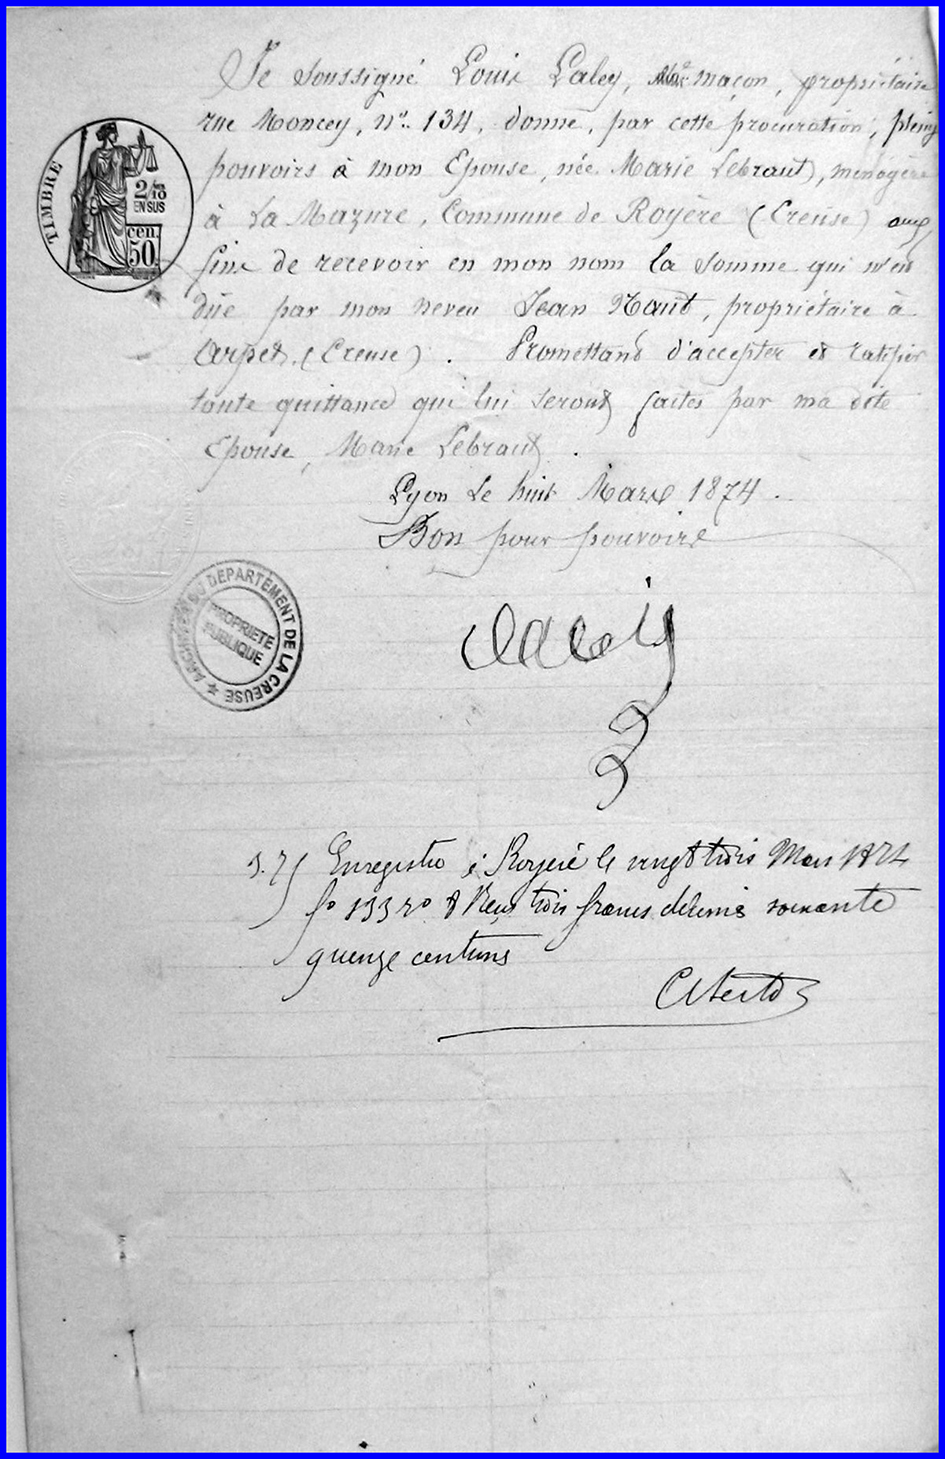 Je soussigné Louis Laley, maçon, propriétaire
rue Moncey, n° 134, donne, par cette procuration, pleins
pouvoirs à mon Epouse, née Marie Lebraut, ménagère
à La Mazure, Commune de Royère (Creuse) aux
fins de recevoir en mon nom la somme qui m'est
dûe par mon neveu Jean Nanut, propriétaire à
Arpet (Creuse). Promettant d'accepter et ratifier
toute quittance qui lui seront faites par ma dite
Epouse, Marie Lebraut.
Lyon le huit Mars 1874.
Bon pour pouvoirs
Laley
3.75 Enregistré à Royère le vingt trois Mars 1874
fo 133 ro Reçu trois francs décimes soixante
quinze centimes
TIMBRE
2/10
EN SUS
cen.
50.
ARCHIVES DU DEPARTEMENT DE LA CREUSE
PROPRIETE
PUBLIQUE